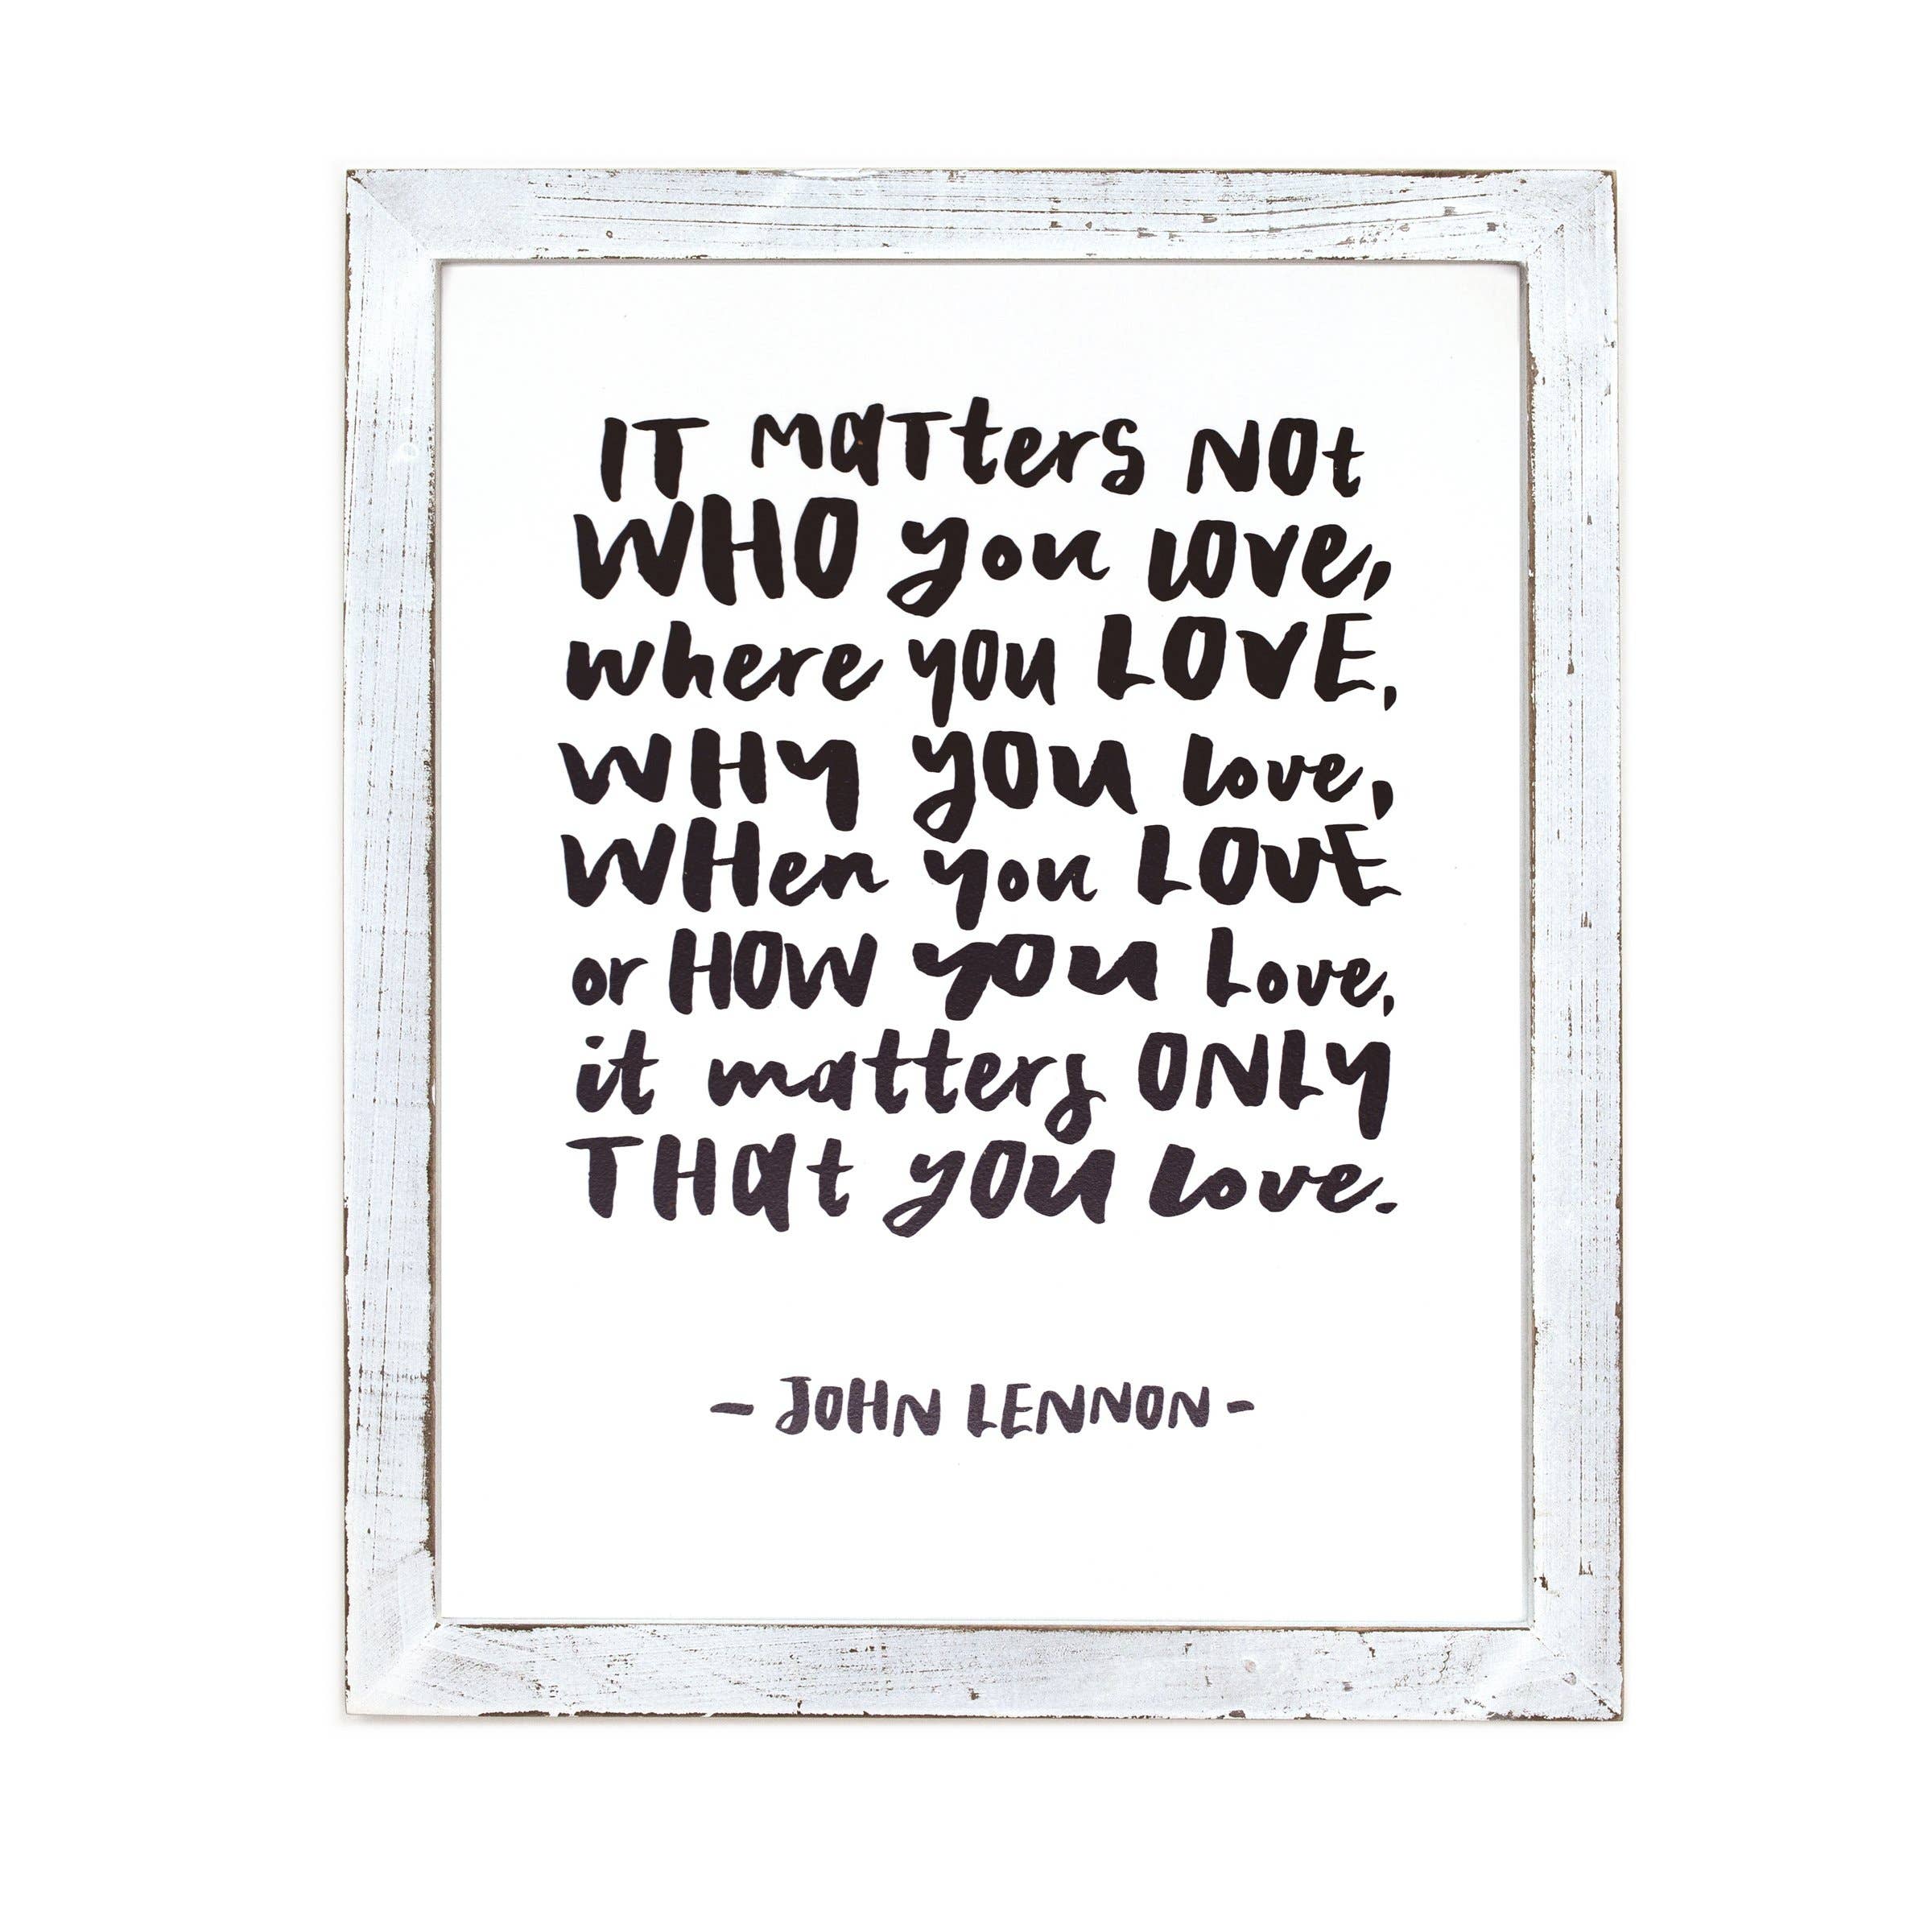 IT MaTters NOt
WHO you love,
where you LOVE,
WHy you love,
WHen you LOVE
or HOW you Love,
it matters ONLY
THat you love.
- JOHN LENNON -